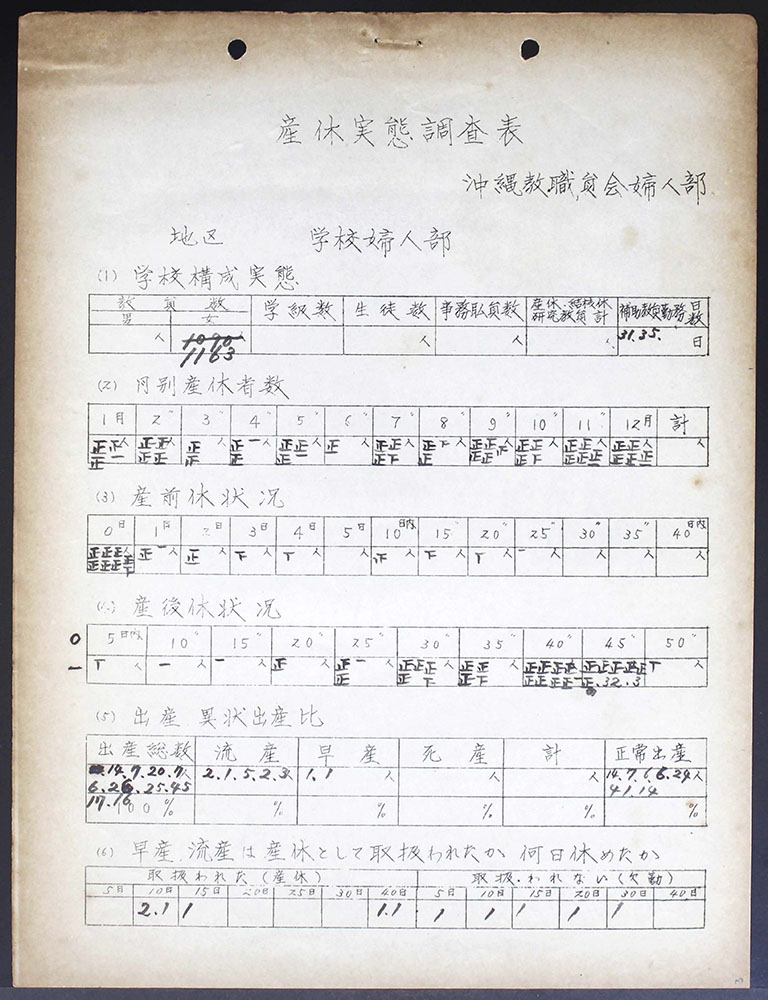 産休実態調査表
沖縄教職員会婦人部
地区 学校婦人部
(1) 学校構成実態
教員数 学級数 生徒数 事務职員数 産休、結核休 補助教員勤務日数
男 女 研究教員 計
人 1090 人 人 31.35. 日
1163
(2) 月別産休者数
1月 2〃 3〃 4〃 5〃 6〃 7〃 8〃 9〃 10〃 11〃 12月 計
正正人 正正人 正人 正一人 正正人 正人 正正人 正下人 正正人 正下人 正正人 正正人 人
正 正正 正 正 正一 正下 正 正正 正正 正正正 正正正
(3) 産前休状況
0日 1日 2日 3日 4日 5日 10日内 15〃 20〃 25〃 30〃 35〃 40日内
正正正人 正一人 正人 下人 丅人 人 正人 下人 丅人 一人 人 人 人
正正正正下
(4) 産後休状況
0 5日内 10〃 15〃 20〃 25〃 30〃 35〃 40〃 45〃 50〃
一 丅人 一人 一人 正人 正一人 正正正 正正人 正正正正 正正正正正 丅人
正 正下 正正 正正正正一 正.32.3
(5) 出産、異状出産比
出産総数 流産 早産 死産 計 正常出産
14.7.20.7人 2.1.5.2.3人 1.1人 人 人 14.7.6.6.29人
6.26.25.45 41.14
17.16
100% % % % % %
(6) 早産、流産は産休として取扱われたか 何日休めたか
取扱われた(産休) 取扱われない(欠勤)
5日 10日 15日 20日 25日 30日 40日 5日 10日 15日 20日 30日 40日
2.1 1 1.1 1 1 1 1 1